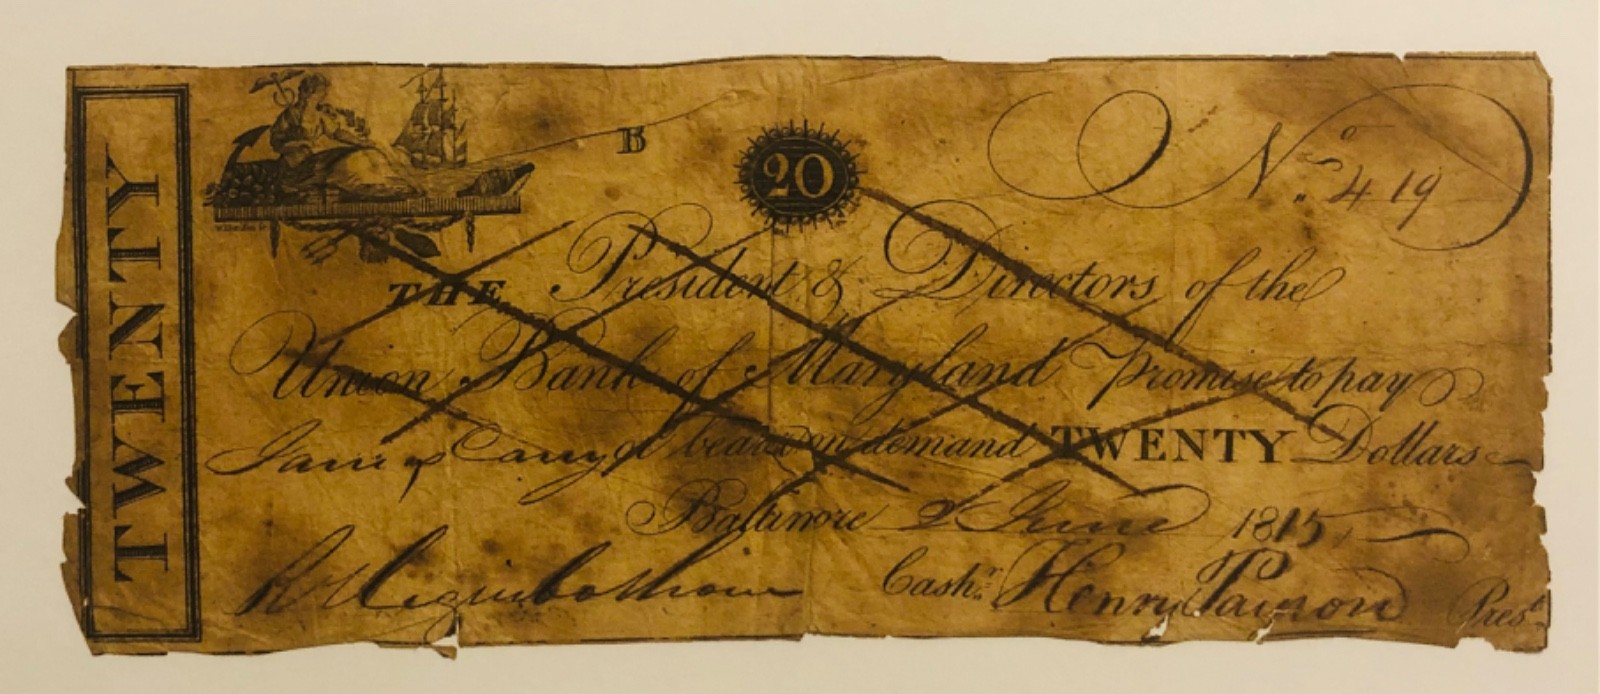 TWENTY
B
20
No. 419
THE President & Directors of the
Union Bank of Maryland Promise to pay
James Cary or bearer on demand TWENTY Dollars
Baltimore 2 June 1815
R Higinbothom Cashr. Henry Payson Prest.